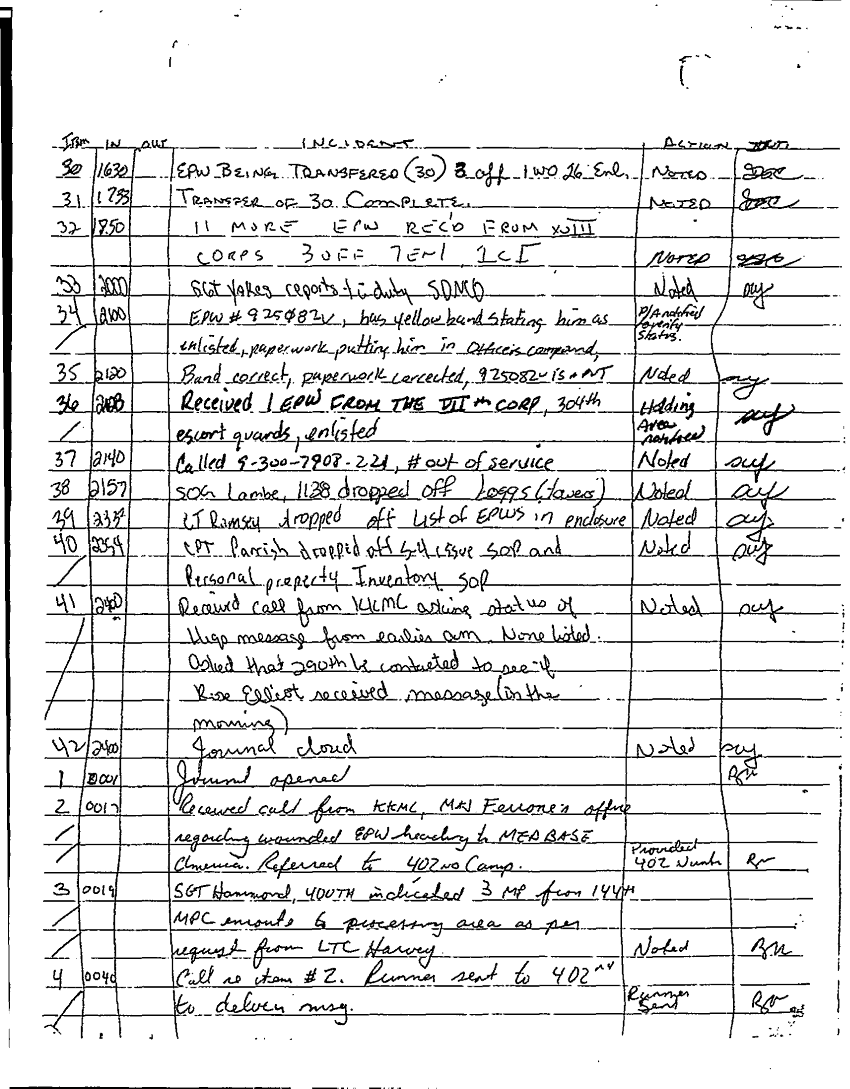 ITEM IN OUT INCIDENT ACTION
30 1630 EPW BEING TRANSFERED (30) 3 off 1 WO 26 Enl. NOTED
31 1733 TRANSFER OF 30 COMPLETE. NOTED
32 1850 11 MORE EPW REC'D FROM XVIII
CORPS 3 OFF 7 Enl 1 CI NOTED
33 2000 SGT Yokes reports to duty SDNCO Noted
34 2100 EPW # 925082v, has yellow band stating him as P/A notified
enlisted, paperwork putting him in Officers compound, Status.
35 2120 Band correct, paperwork corrected, 925082v is a NT Noted
36 Received 1 EPW FROM THE VII th CORP, 304th Holding
escort guards, enlisted Area notified
37 2140 Called 9-300-7908-221, # out of service Noted
38 2157 SOG Lambe, 1138 dropped off Loggs (Towers) Noted
39 LT Ramsey dropped off List of EPWS in enclosure Noted
40 2354 CPT Parrish dropped off S-4 issue SOP and Noted
Personal property Inventory SOP
41 2400 Received call from KKMC asking status of Noted
message from earlier am. None listed.
Asked that 290th be contacted to see if
Elliot received message (in the
morning)
42 2400 Journal closd Noted
1 0001 Journal opened
2 0017 Received call from KKMC, MAJ Ferrone's office
regarding wounded EPW heading to MED BASE
America. Referred to 402ND Camp. Provided 402 Numb
3 0019 SGT Hammond, 400TH indicated 3 MP from 144th
MPC enroute to processing area as per
request from LTC Harvey. Noted
4 0040 Call re item #2. Runner sent to 402nd
to deliver msg. Runner Sent